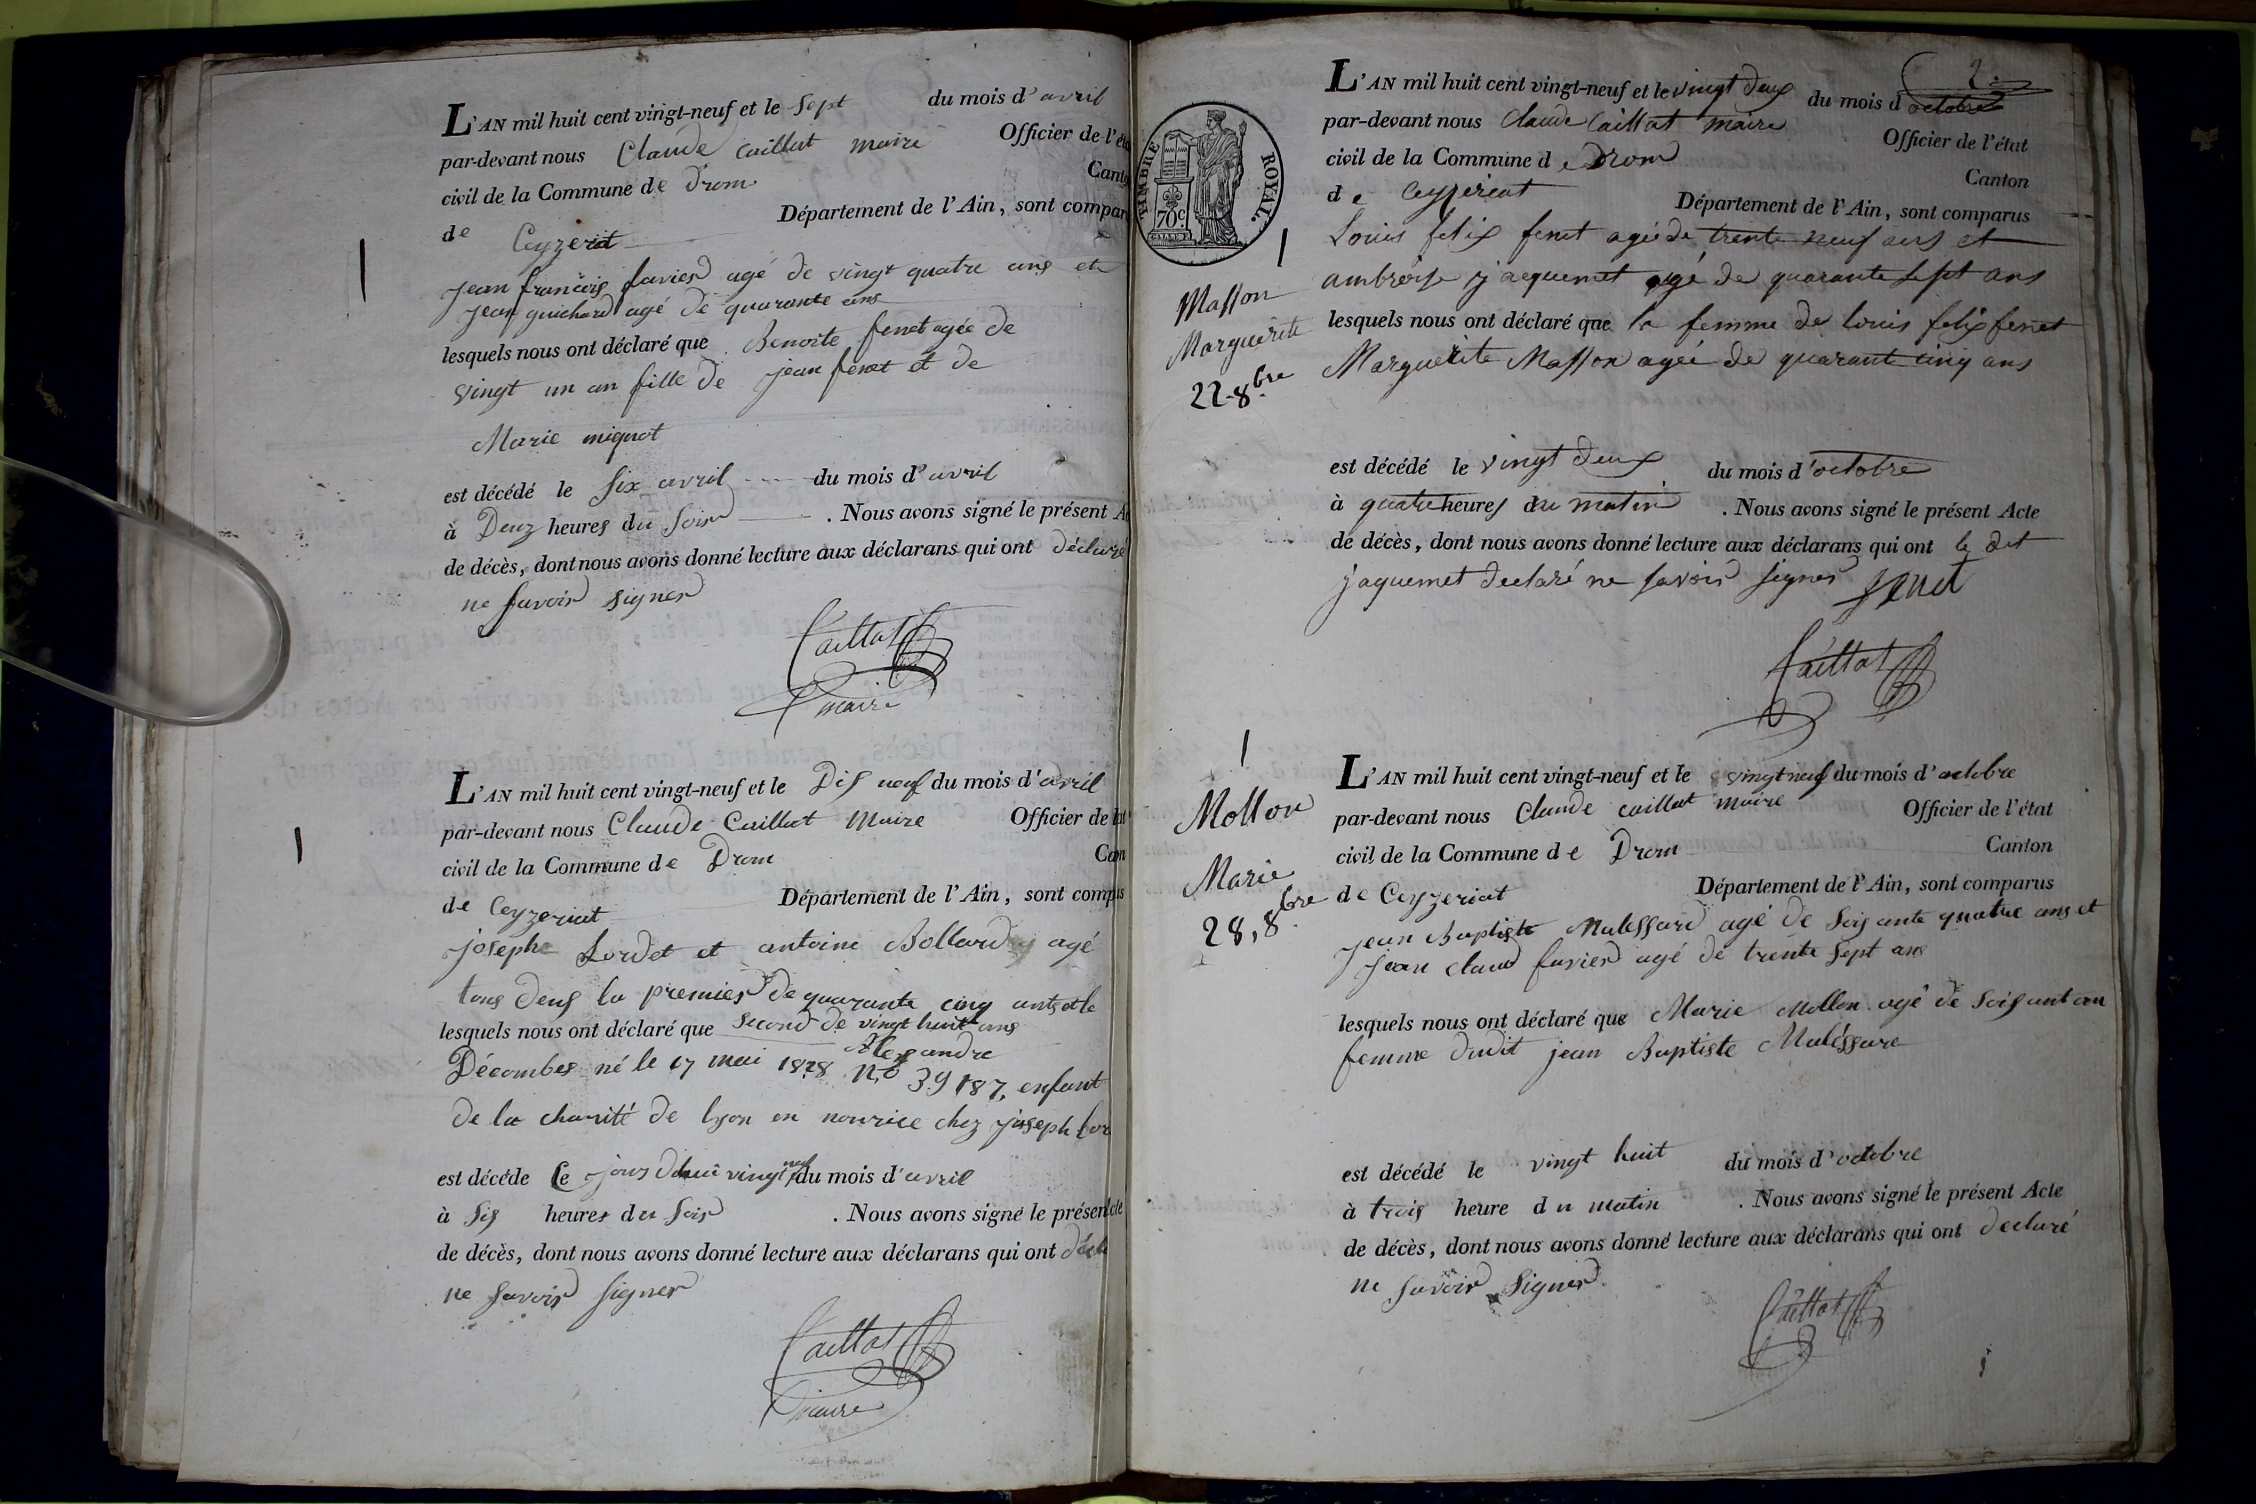 L'AN mil huit cent vingt-neuf et le sept du mois d'avril
par-devant nous Claude Caillat maire Officier de l'éta
civil de la Commune de Drom Canto
de Ceyzeriat Département de l'Ain, sont compar
jean françois favier agé de vingt quatre ans et
jean guichard agé de quarante ans
lesquels nous ont déclaré que Benoite fenet agée de
vingt un an fille de jean fenet et de
Marie mignot
est décédé le six avril du mois d'avril
à Deux heures du soir . Nous avons signé le présent Ac
de décès, dont nous avons donné lecture aux déclarans qui ont déclaré
ne savoir signer
Caillat
maire
L'AN mil huit cent vingt-neuf et le Dix neuf du mois d'avril
par-devant nous Claude Caillat Maire Officier de l'ét
civil de la Commune de Drom Can
de Ceyzeriat Département de l'Ain, sont comp
joseph Lordet et antoine Bollard agé
tous deux le premier de quarante cinq ants et le
lesquels nous ont déclaré que second de vingt huit ans
Alexandre
Décombes né le 17 mai 1828 n.º 39187, enfant
de la charité de lyon en nourrice chez joseph lor
est décédé le jour vingt neuf du mois d'avril
à six heures du soir . Nous avons signé le présent cte
de décès, dont nous avons donné lecture aux déclarans qui ont décla
ne savoir signer
Caillat
maire
2.
TIMBRE ROYAL.
70c
L'AN mil huit cent vingt-neuf et le vingt deux du mois d octobre
par-devant nous Claude Caillat maire Officier de l'état
civil de la Commune de Drom Canton
de Ceyzeriat Département de l'Ain, sont comparus
Louis felix fenet agé de trente neuf ans et
ambroise jaquemet agé de quarante sept ans
lesquels nous ont déclaré que la femme de louis felix fenet
Marguerite Masson agée de quarante cinq ans
Masson
Marguerite
22-8.bre
est décédé le vingt deux du mois d'octobre
à quatre heures du matin . Nous avons signé le présent Acte
de décès, dont nous avons donné lecture aux déclarans qui ont le dit
jaquemet declaré ne savoir signer fenet
Caillat
Mollon
Marie
28,8.bre
L'AN mil huit cent vingt-neuf et le vingt neuf du mois d'octobre
par-devant nous Claude caillat maire Officier de l'état
civil de la Commune de Drom Canton
de Ceyzeriat Département de l'Ain, sont comparus
jean Baptiste Malessard agé de soixante quatre ans et
jean claud favier agé de trente sept ans
lesquels nous ont déclaré que Marie Mollon agé de soixant an
femme dudit jean Baptiste Maléssare
est décédé le vingt huit du mois d'octobre
à trois heure du matin . Nous avons signé le présent Acte
de décès, dont nous avons donné lecture aux déclarans qui ont declaré
ne savoir signer
Caillat